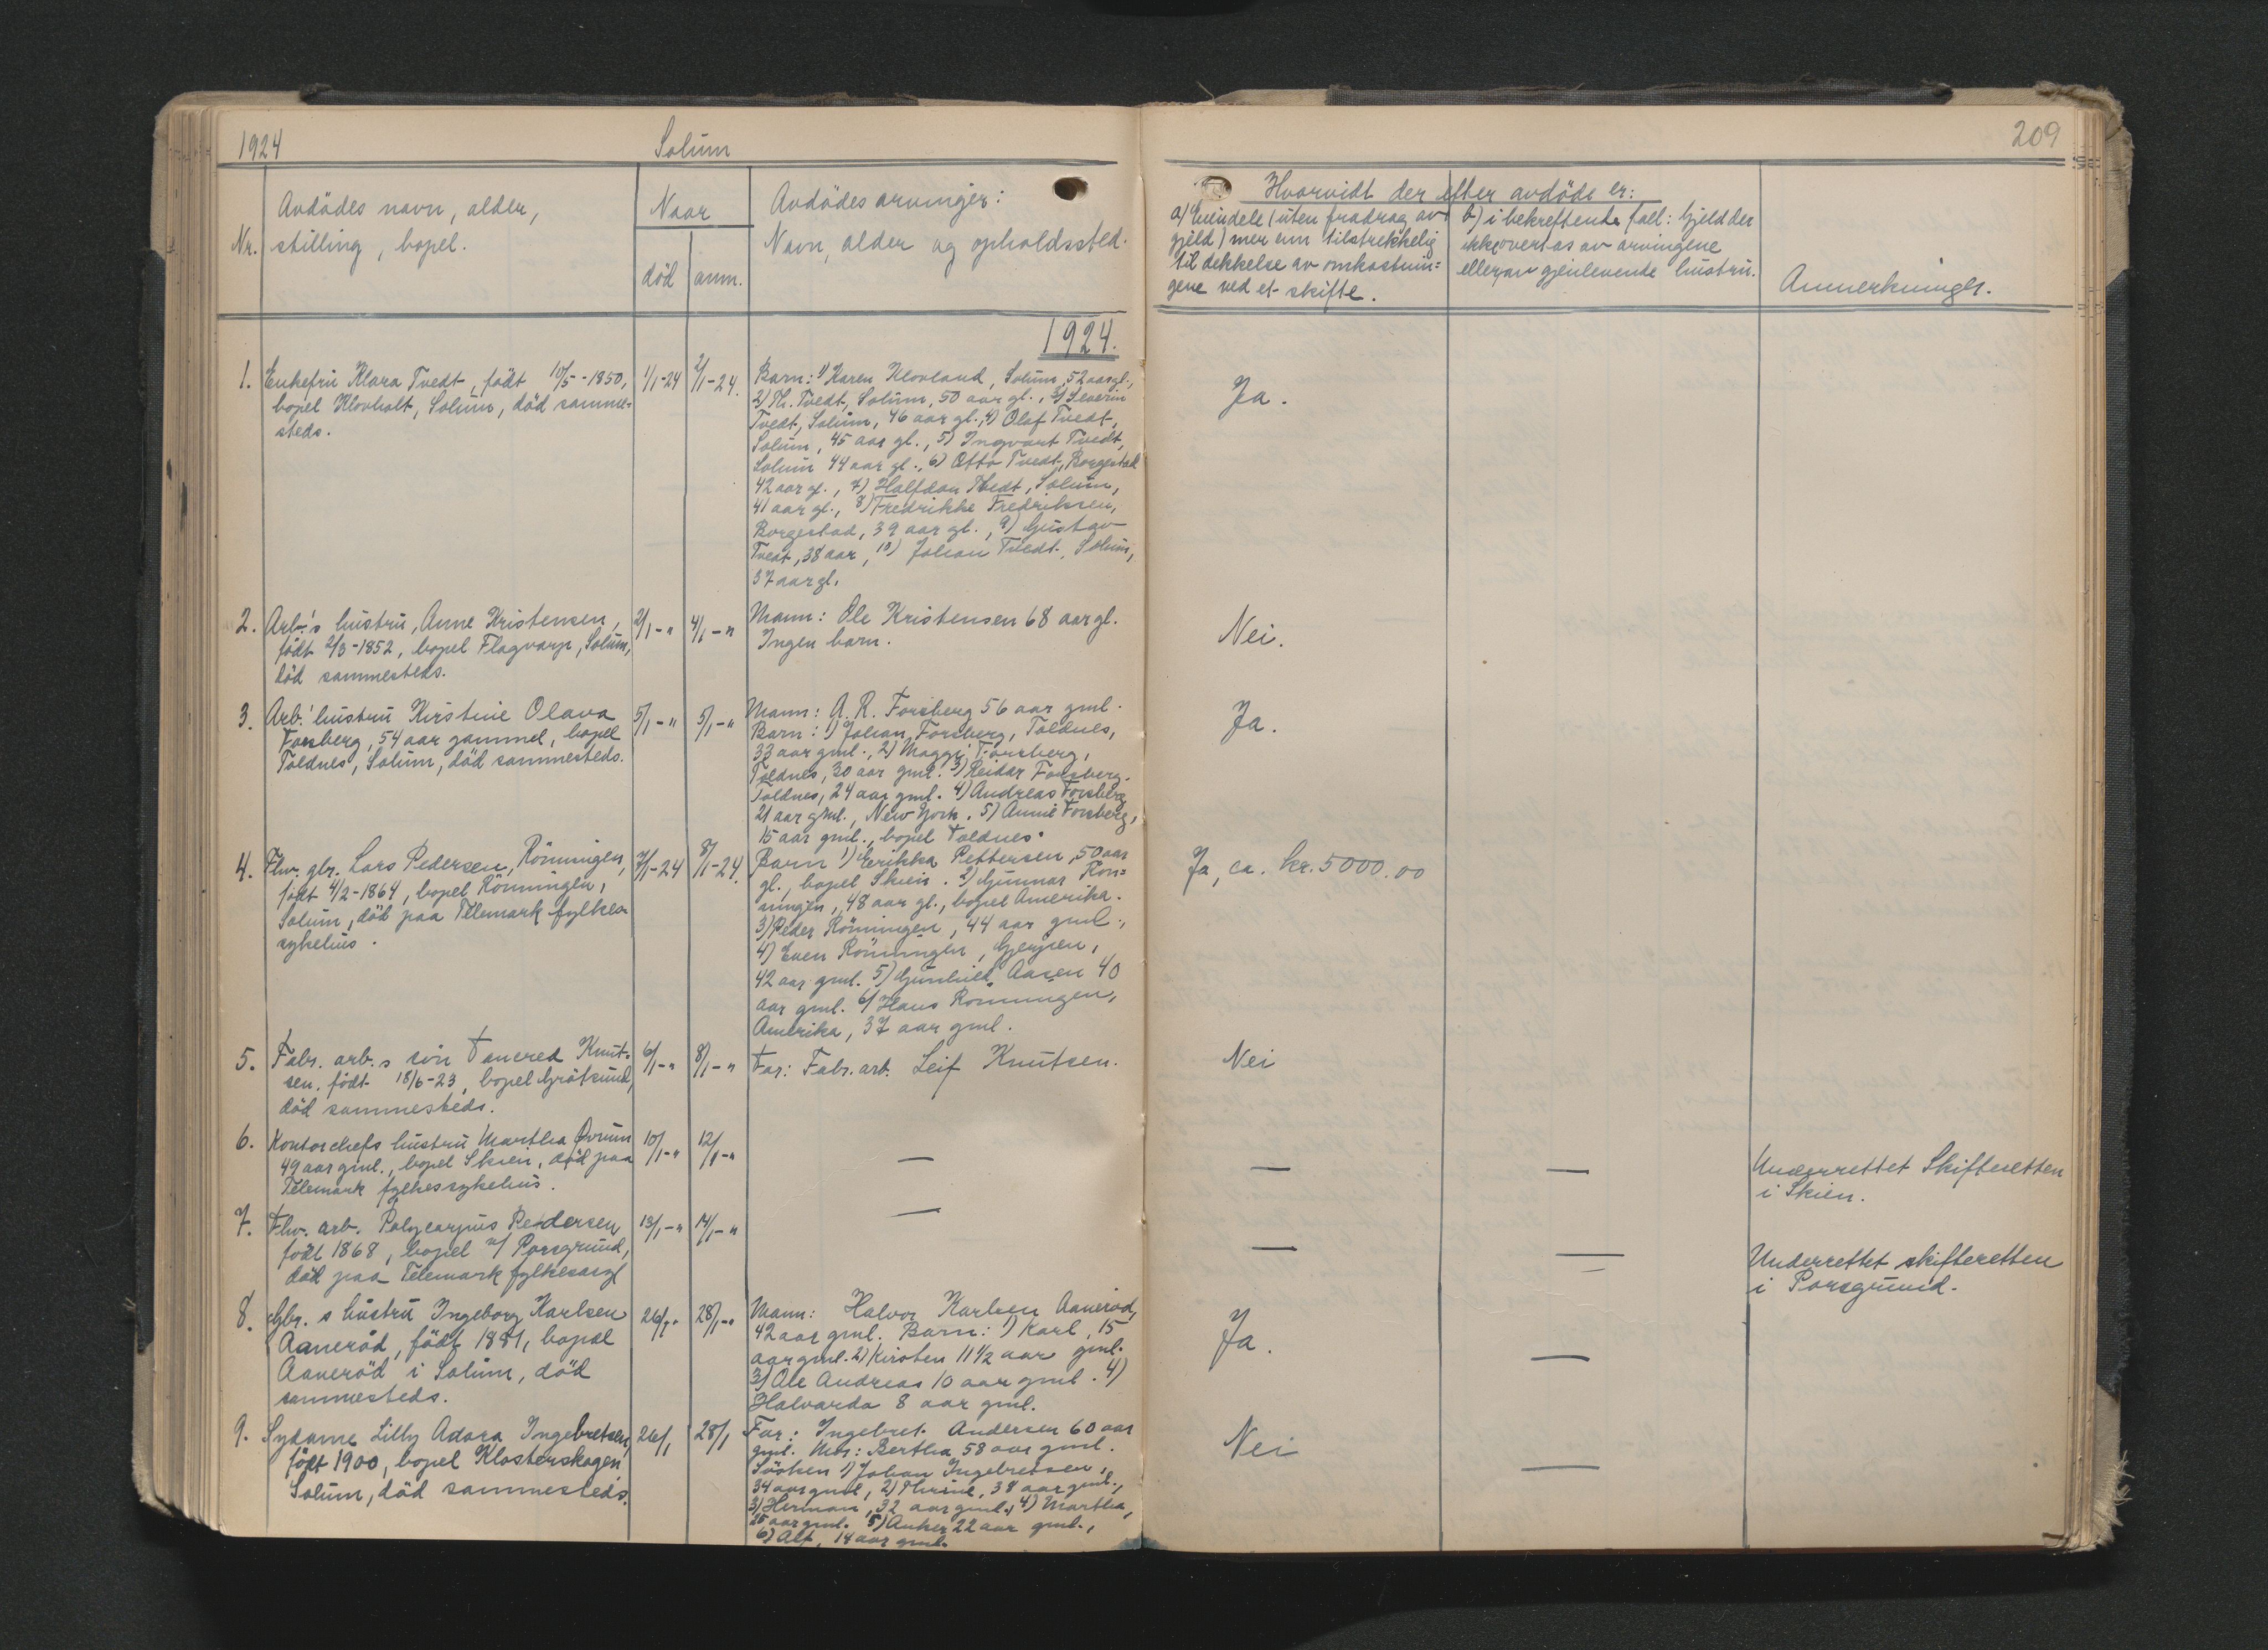 1924
Solum
209
Nr.
Avdödes navn, alder,
stilling, bopel.
Naar
död
anm.
Avdödes arvinger:
Navn, alder og opholdssted.
Hvorvidt der efter avdöde er:
a) Eiendele (uten fradrag av
gjeld) mer enn tilstrekkelig
til dekkelse av omkostnin=
gene ved et skifte.
b) i bekreftende fall: Gjeld der
ikke overtas av arvingene
eller av gjenlevende hustru.
Anmerkninger.
1924.
1.
Enkefru Klara Tvedt, födt 10/5-1850,
bopel Klovholt, Solum, död samme=
steds.
1/1-24
2/1-24.
Barn: 1) Karen Klovland, Solum, 52 aar gl.,
2) Th. Tvedt, Solum, 50 aar gl., 3) Severin
Tvedt, Solum, 46 aar gl., 4) Olaf Tvedt,
Solum, 45 aar gl., 5) Ingvart Tvedt,
Solum 44 aar gl., 6) Otto Tvedt, Borgestad
42 aar gl., 7) Halfdan Tvedt, Solum,
41 aar gl., 8) Fredrikke Fredriksen,
Borgestad, 39 aar gl., 9) Gustav
Tvedt, 38 aar, 10) Johan Tvedt, Solum,
37 aar gl.
Ja.
2.
Arb.'s hustru, Anne Kristensen,
födt 2/3-1852, bopel Flagvarp, Solum,
död sammesteds.
2/1-"
4/1-"
Mann: Ole Kristensen 68 aar gl.
Ingen barn.
Nei.
3.
Arb.' hustru Kirstine Olava
Forsberg, 54 aar gammel, bopel
Toldnes, Solum, död sammesteds.
5/1-"
5/1-"
Mann: A. R. Forsberg 56 aar gml.
Barn: 1) Johan Forsberg, Toldnes,
33 aar gml., 2) Maggi Forsberg,
Toldnes, 30 aar gml. 3) Reidar Forsberg.
Toldnes, 24 aar gml. 4) Andreas Forsberg
21 aar gml., New York. 5) Annie Forsberg,
15 aar gml., bopel Toldnes.
Ja.
4.
Fhv. gbr. Lars Pedersen, Rönningen,
födt 4/2-1864, bopel Rönningen,
Solum, död paa Telemark fylkes=
sykehus.
7/1-24
8/1-24.
Barn 1) Erikka Pettersen, 50 aar
gl., bopel Skien. 2) Gunnar Rön=
ningen, 48 aar gl., bopel Amerika.
3) Peder Rönningen, 44 aar gml.,
4) Even Rönningen, Gjerpen,
42 aar gml. 5) Gunhild Aasen 40
aar gml. 6) Hans Rönningen,
Amerika, 37 aar gml.
Ja, ca. kr. 5000.00
5.
Fabr. arb.s sön Tancred Knut=
sen, födt 18/6-23, bopel Grötsund,
död sammesteds.
6/1-"
8/1-"
Far: Fabr. arb. Leif Knutsen.
Nei
6.
Kontorchefs hustru Martha Övrum
49 aar gml., bopel Skien, död paa
Telemark fylkessykehus.
10/1-"
12/1-"
—
—
—
Underrettet Skifteretten
i Skien.
7.
Fhv. arb. Polycarpus Pedersen
födt 1868, bopel v/ Porsgrund,
död paa Telemark fylkessyl
13/1-"
14/1-"
—
—
—
Underrettet skifteretten
i Porsgrund.
8.
Gbr. s hustru Ingeborg Karlsen
Aaneröd, födt 1881, bopel
Aaneröd i Solum, död
sammesteds.
26/1"
28/1-"
Mann: Halvor Karlsen Aaneröd,
42 aar gml. Barn: 1) Karl, 15
aar gml. 2) Kirsten 11 1/2 aar gml.
3) Ole Andreas 10 aar gml. 4)
Halvarda 8 aar gml.
Ja.
—
9.
Sydame Lilly Adora Ingebretsen,
födt 1900, bopel Klosterskogen
Solum, död sammesteds.
26/1
28/1
Far: Ingebret Andersen 60 aar
gml. Mor: Bertha 58 aar gml.
Sösken 1) Johan Ingebretsen,
34 aar gml, 2) Thrine, 38 aar gml.,
3) Herman, 32 aar gml., 4) Martha,
25 aar gml. 5) Anker 22 aar gml.,
6) Alf, 14 aar gml.
Nei
—